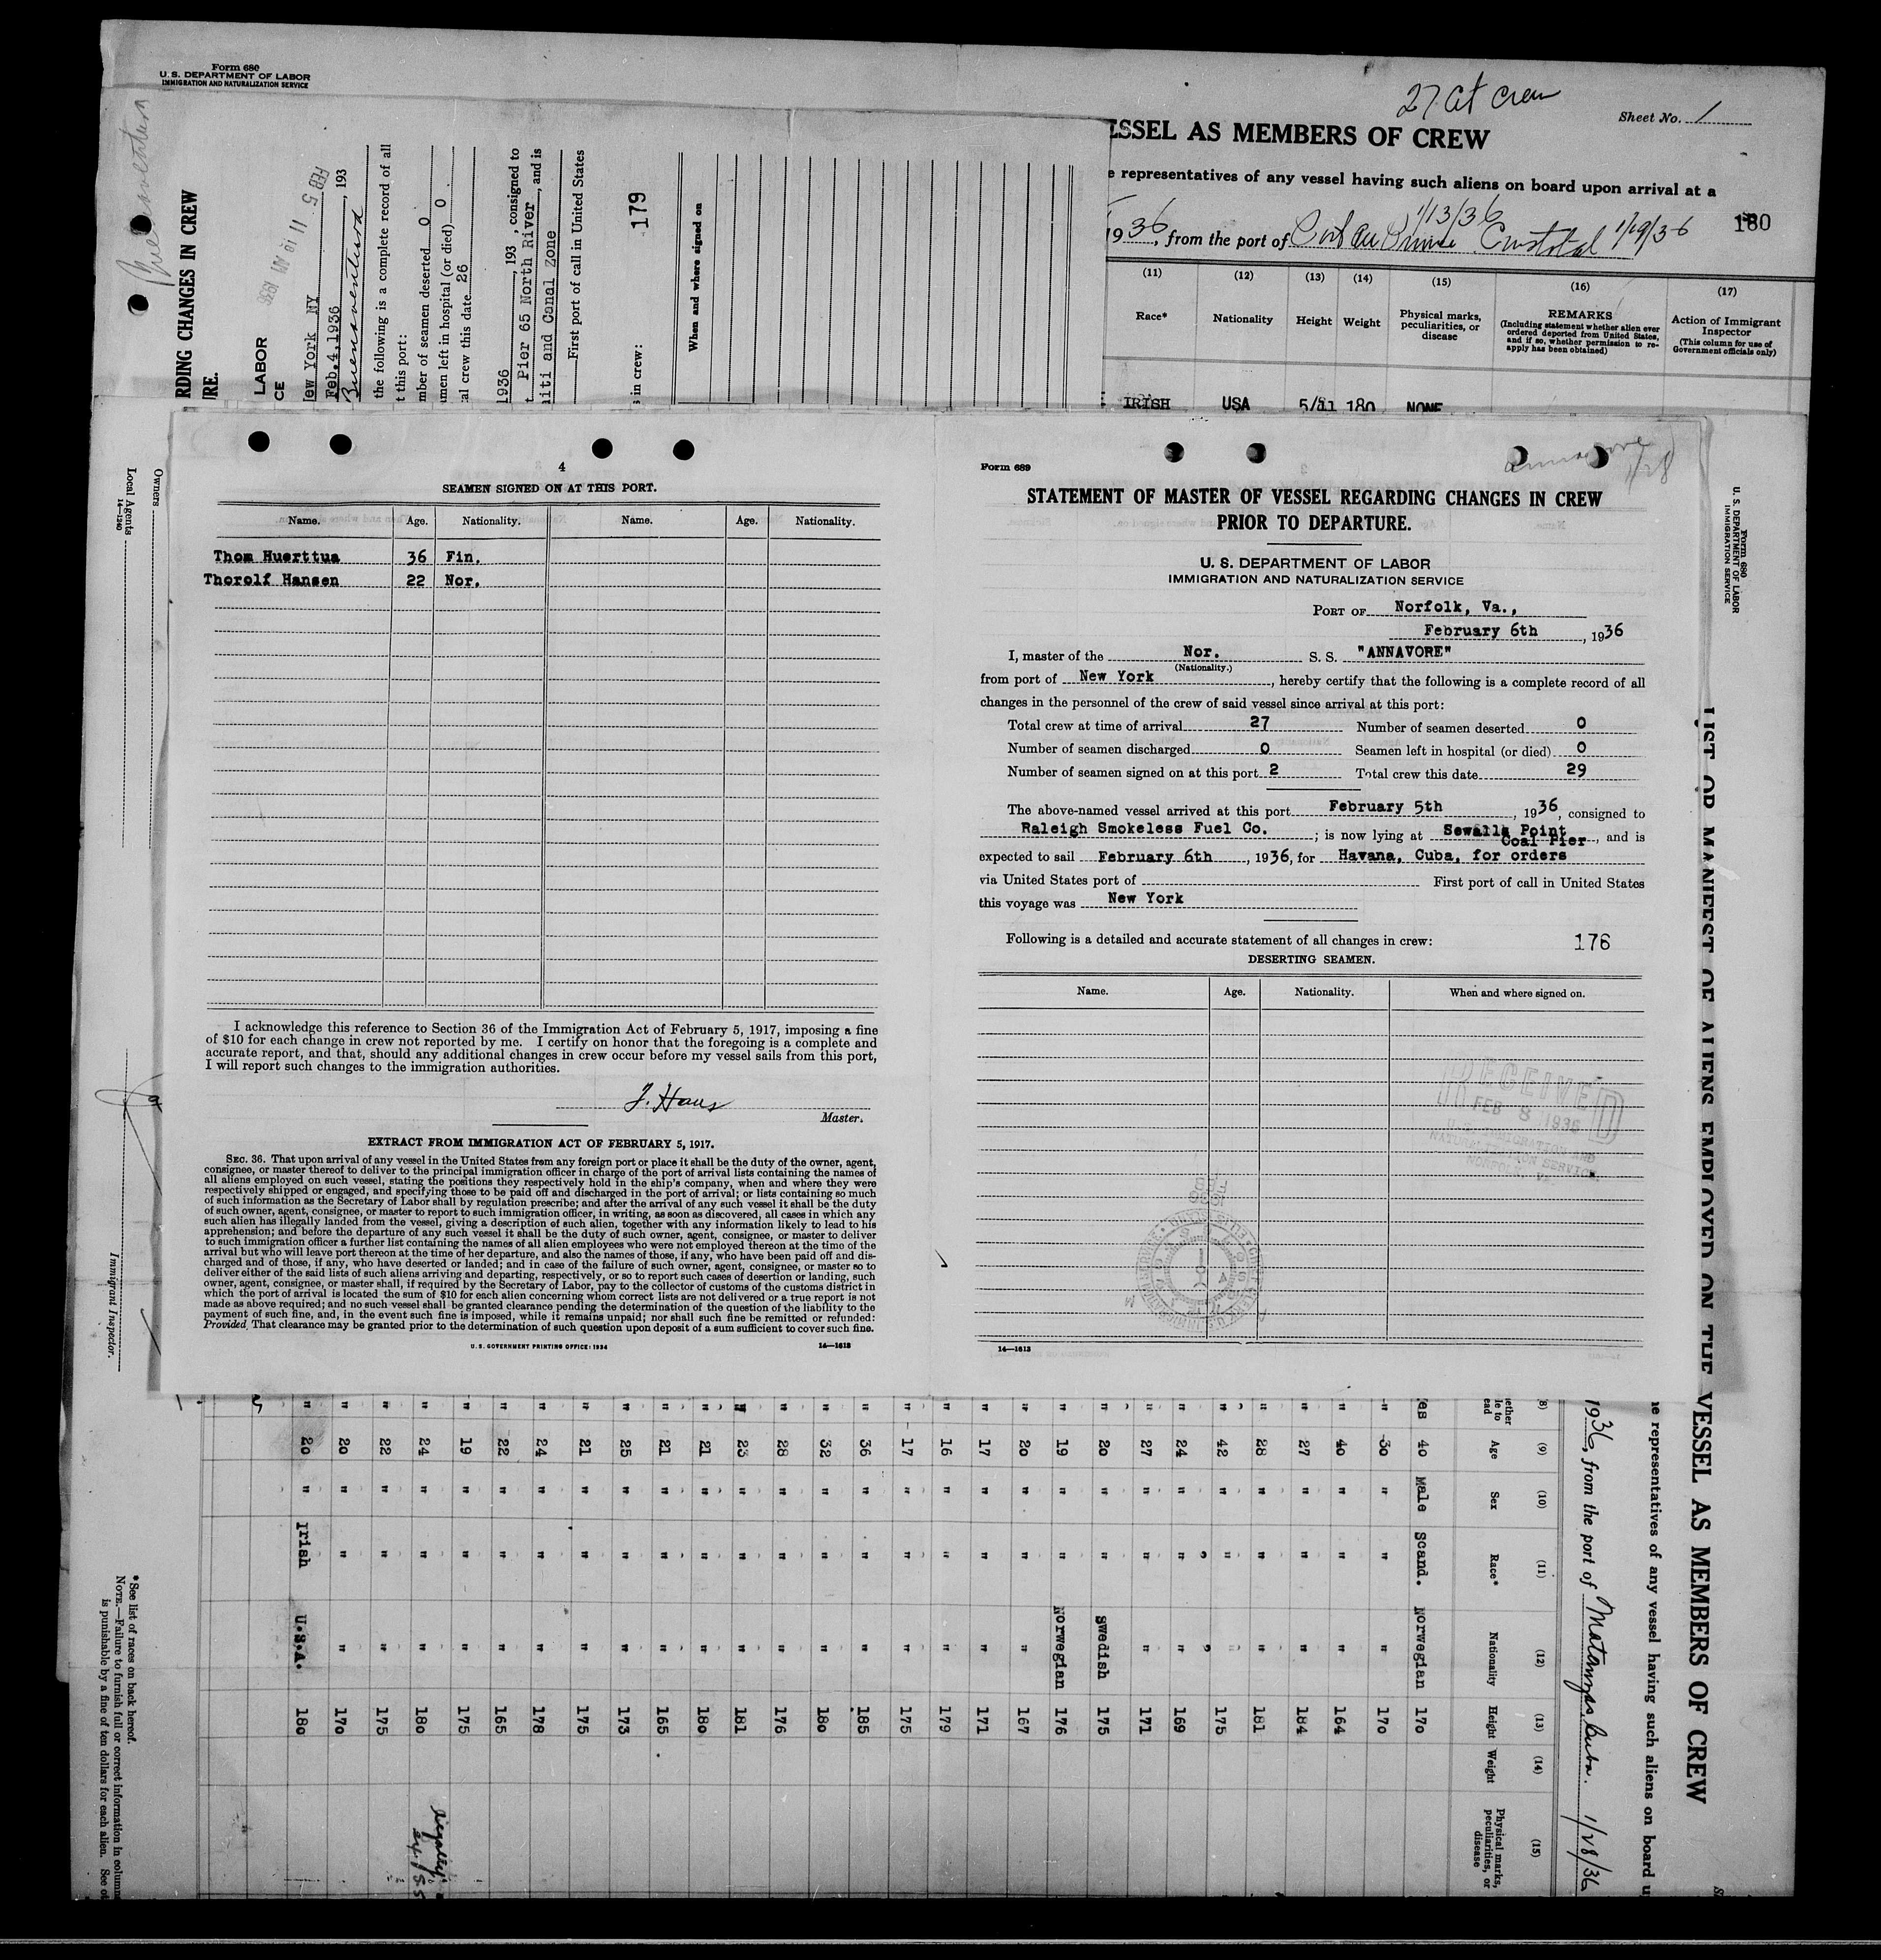 Form 680
U. S. DEPARTMENT OF LABOR
IMMIGRATION AND NATURALIZATION SERVICE
27 at crew
Sheet No. 1
ESSEL AS MEMBERS OF CREW
e representatives of any vessel having such aliens on board upon arrival at a
1/13/36
1936, from the port of Port au Prince Cristobal 1/29/36
180
(11) (12) (13) (14) (15) (16) (17)
Race* Nationality Height Weight Physical marks, peculiarities, or disease
REMARKS
(Including statement whether alien ever ordered deported from United States, and if so, whether permission to reapply has been obtained)
Action of Immigrant Inspector
(This column for use of Government officials only)
IRISH USA 5/11 180 NONE
RDING CHANGES IN CREW
RE.
LABOR
CE
FEB 5 11 18 AM 1936
ew York NY
Feb.4,1936, 193
Buenaventura
the following is a complete record of all
t this port:
mber of seamen deserted 0
men left in hospital (or died) 0
al crew this date 26
1936, 193 , consigned to
t Pier 65 North River, and is
iti and Canal Zone
First port of call in United States
s in crew:
179
When and where signed on
4
SEAMEN SIGNED ON AT THIS PORT.
Name. Age. Nationality. Name. Age. Nationality.
Thom Huerttua 36 Fin.
Thorolf Hansen 22 Nor.
I acknowledge this reference to Section 36 of the Immigration Act of February 5, 1917, imposing a fine
of $10 for each change in crew not reported by me. I certify on honor that the foregoing is a complete and
accurate report, and that, should any additional changes in crew occur before my vessel sails from this port,
I will report such changes to the immigration authorities.
Master.
EXTRACT FROM IMMIGRATION ACT OF FEBRUARY 5, 1917.
SEC. 36. That upon arrival of any vessel in the United States from any foreign port or place it shall be the duty of the owner, agent,
consignee, or master thereof to deliver to the principal immigration officer in charge of the port of arrival lists containing the names of
all aliens employed on such vessel, stating the positions they respectively hold in the ship's company, when and where they were
respectively shipped or engaged, and specifying those to be paid off and discharged in the port of arrival; or lists containing so much
of such information as the Secretary of Labor shall by regulation prescribe; and after the arrival of any such vessel it shall be the duty
of such owner, agent, consignee, or master to report to such immigration officer, in writing, as soon as discovered, all cases in which any
such alien has illegally landed from the vessel, giving a description of such alien, together with any information likely to lead to his
apprehension; and before the departure of any such vessel it shall be the duty of such owner, agent, consignee, or master to deliver
to such immigration officer a further list containing the names of all alien employees who were not employed thereon at the time of the
arrival but who will leave port thereon at the time of her departure, and also the names of those, if any, who have been paid off and dis-
charged and of those, if any, who have deserted or landed; and in case of the failure of such owner, agent, consignee, or master so to
deliver either of the said lists of such aliens arriving and departing, respectively, or so to report such cases of desertion or landing, such
owner, agent, consignee, or master shall, if required by the Secretary of Labor, pay to the collector of customs of the customs district in
which the port of arrival is located the sum of $10 for each alien concerning whom correct lists are not delivered or a true report is not
made as above required; and no such vessel shall be granted clearance pending the determination of the question of the liability to the
payment of such fine, and, in the event such fine is imposed, while it remains unpaid; nor shall such fine be remitted or refunded:
Provided, That clearance may be granted prior to the determination of such question upon deposit of a sum sufficient to cover such fine.
U. S. GOVERNMENT PRINTING OFFICE: 1934 14—1613
Form 689
Annavore
1/28
STATEMENT OF MASTER OF VESSEL REGARDING CHANGES IN CREW
PRIOR TO DEPARTURE.
U. S. DEPARTMENT OF LABOR
IMMIGRATION AND NATURALIZATION SERVICE
PORT OF Norfolk, Va.,
February 6th, 1936
I, master of the Nor. S. S. "ANNAVORE"
(Nationality.)
from port of New York, hereby certify that the following is a complete record of all
changes in the personnel of the crew of said vessel since arrival at this port:
Total crew at time of arrival 27 Number of seamen deserted 0
Number of seamen discharged 0 Seamen left in hospital (or died) 0
Number of seamen signed on at this port 2 Total crew this date 29
The above-named vessel arrived at this port February 5th, 1936, consigned to
Raleigh Smokeless Fuel Co. ; is now lying at Sewalls Point Coal Pier, and is
expected to sail February 6th, 1936, for Havana, Cuba, for orders
via United States port of First port of call in United States
this voyage was New York
Following is a detailed and accurate statement of all changes in crew: 176
DESERTING SEAMEN.
Name. Age. Nationality. When and where signed on.
RECEIVED
FEB 8 1936
U. S. IMMIGRATION AND
NATURALIZATION SERVICE
NORFOLK, VA.
14—1613
Owners
Local Agents
14—1240
Immigrant Inspector.
*See list of races on back hereof.
NOTE.—Failure to furnish full or correct information in column
is punishable by a fine of ten dollars for each alien. See ot
Form 680
U. S. DEPARTMENT OF LABOR
IMMIGRATION AND NATURALIZATION SERVICE
LIST OR MANIFEST OF ALIENS EMPLOYED ON THE VESSEL AS MEMBERS OF CREW
he representatives of any vessel having such aliens on board u
1936, from the port of Matanzas, Cuba. 1/28/36
(8) (9) (10) (11) (12) (13) (14) (15)
Age Sex Race* Nationality Height Weight Physical marks, peculiarities, or disease
yes 40 Male Scand. Norwegian 170
" 30 " " " 170
" 40 " " " 164
" 27 " " " 184
" 28 " " " 181
" 42 " " " 175
" 24 " " " 169
" 27 " " " 171
" 20 " " Swedish 175
" 19 " " Norwegian 176
" 20 " " " 167
" 17 " " " 171
" 16 " " " 179
" 17 " " " 175
" 36 " " " 185
" 32 " " " 180
" 28 " " " 176
" 23 " " " 181
" 21 " " " 180
" 21 " " " 165
" 25 " " " 173
" 21 " " " 175
" 24 " " " 178
" 22 " " " 165
" 19 " " " 175
" 24 " " " 180
" 22 " " " 175
" 20 " " " 170
" 20 " Irish U.S.A. 180